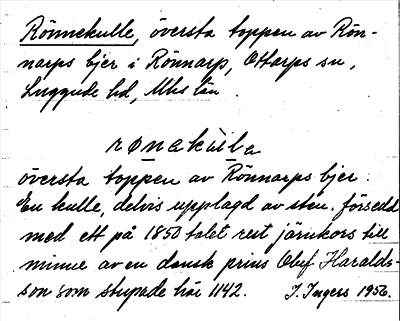 Rönnekulle, översta toppen av Rön-
narps bjer i Rönnarp, Ottarps sn,
Luggude hd, Mhs län.
rønəkùlə
översta toppen av Rönnarps bjer.
En kulle, delvis upplagd av sten. försedd
med ett på 1850 talet rest järnkors till
minne av en dansk prins Oluf Haralds-
son som stupade här 1142. I. Ingers 1956.